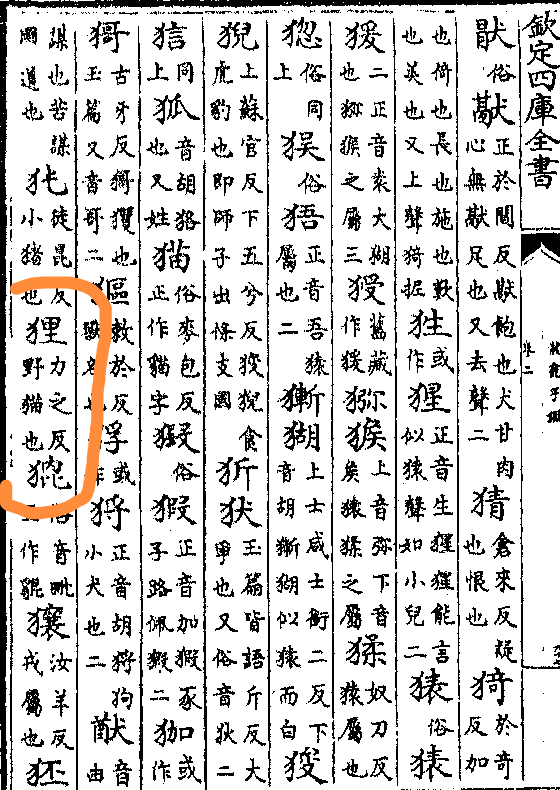 欽定四庫全書
猒俗猒正於閻反猒飽也犬甘肉心無猒足也又去聲二猜倉來反疑也恨也猗於奇反加
也倚也長也施也歎也美也又上聲猗狌或作猩正音生猩猩能言似猿聲如小兒二猿俗猿
猨二正音袁大猢也猕猴之屬三舊藏作猨猕猴上音弥下音矦猿猱之屬猱奴刀反猿屬也
俗同上俗正音吾猿屬也二獑猢上士咸士銜二反下音胡獑猢似猿而白狻
猊上蘇官反下五兮反狻猊食虎豹也即師子出條支國玉篇皆語斤反大甲也又俗音狄二
同上狐音胡狢也又姓猫俗麥包反正作貓字俗猳正音加猳豕子路佩猳二或作
古牙反玃也玉篇又音哥二敕於反獸名也或作正音胡狗小犬也二猷音由
謀也苦謀圖道也㹠徒昆反小猪也狸力之反野猫也俗音毗正作貔獽汝羊反戎屬也狉